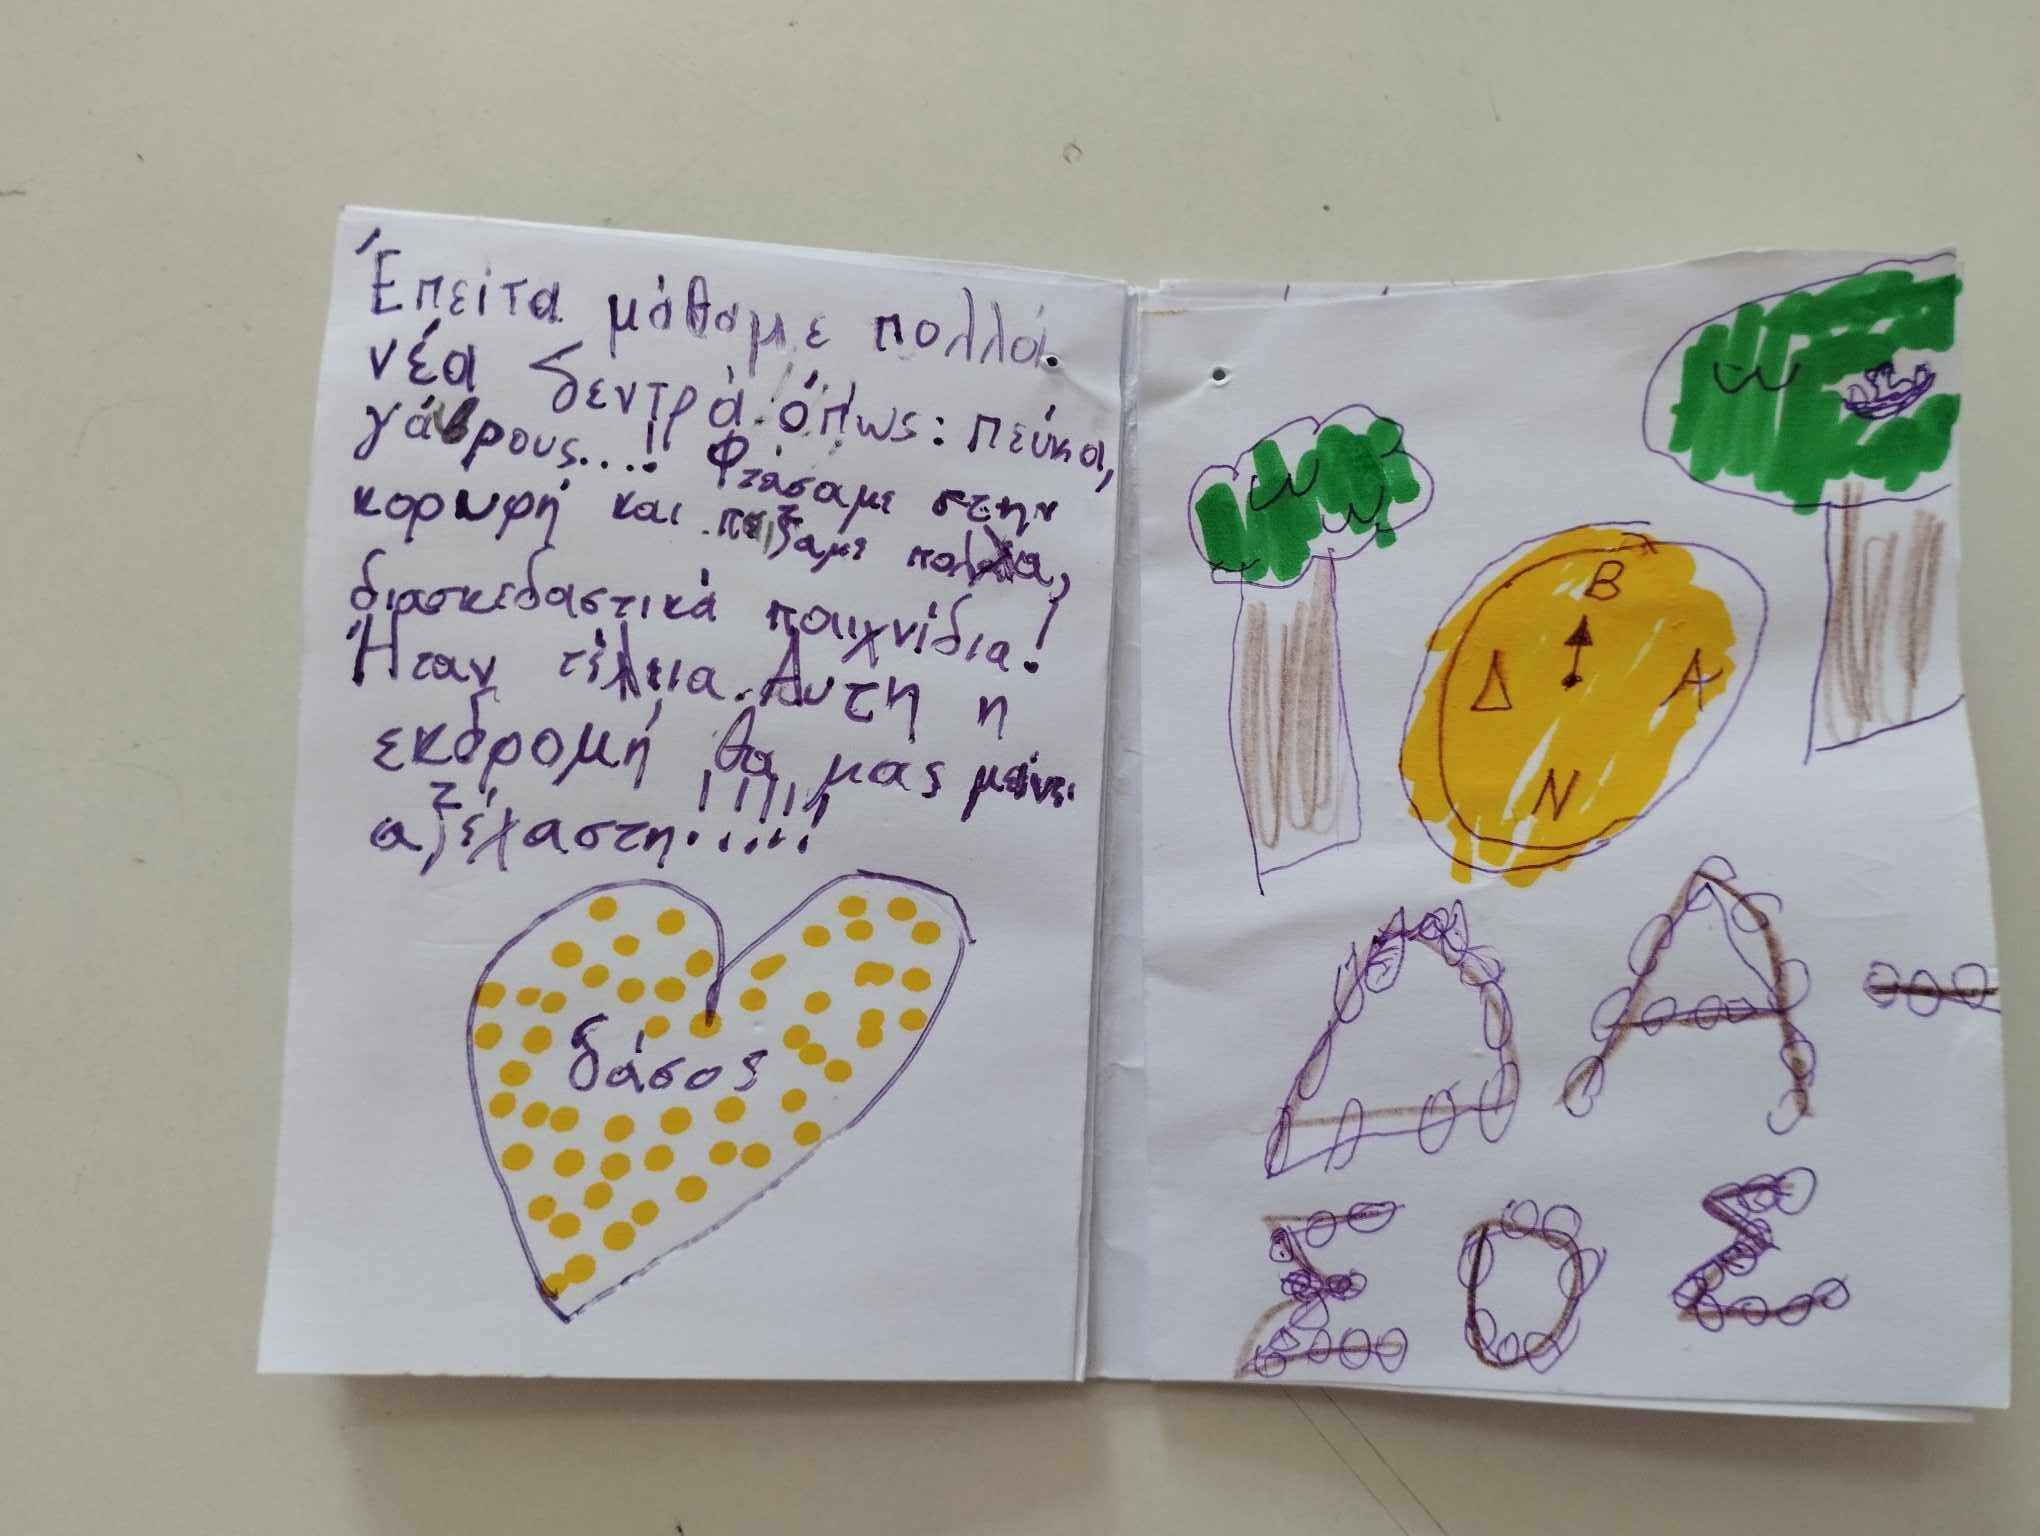 Έπειτα μάθαμε πολλά
νέα δεντρά όπως: πεύκα,
γάβρους...! Φτάσαμε στην
κορυφή και παίξαμε πολλα,
διασκεδαστικά παιχνίδια!
Ήταν τέλεια. Αυτη η
εκδρομή θα μας μείνει
αξέχαστη.!!!!!
δάσος
Β
Δ Α
Ν
ΔΑ-
ΣΟΣ